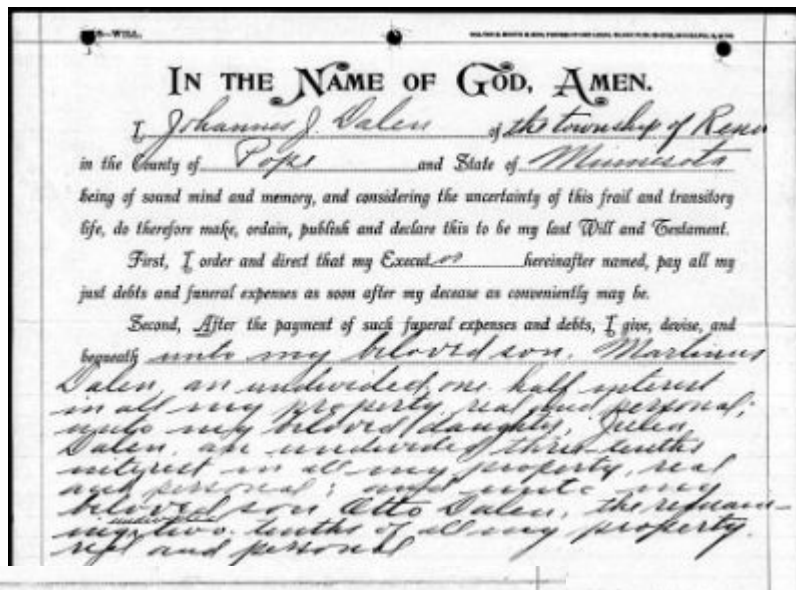 —WILL.
IN THE NAME OF GOD, AMEN.
I, Johannes J. Dalen of the township of Reno
in the County of Pope and State of Minnesota
being of sound mind and memory, and considering the uncertainty of this frail and transitory
life, do therefore make, ordain, publish and declare this to be my last Will and Testament.
First, I order and direct that my Executor hereinafter named, pay all my
just debts and funeral expenses as soon after my decease as conveniently may be.
Second, After the payment of such funeral expenses and debts, I give, devise, and
bequeath unto my beloved son, Martinus
Dalen, an undivided one half interest
in all my property, real and personal;
unto my beloved daughter, Julia
Dalen, an undivided three-tenths
interest in all my property, real
and personal; and unto my
beloved son Otto Dalen, the remain-
ing undivided two-tenths of all my property,
real and personal